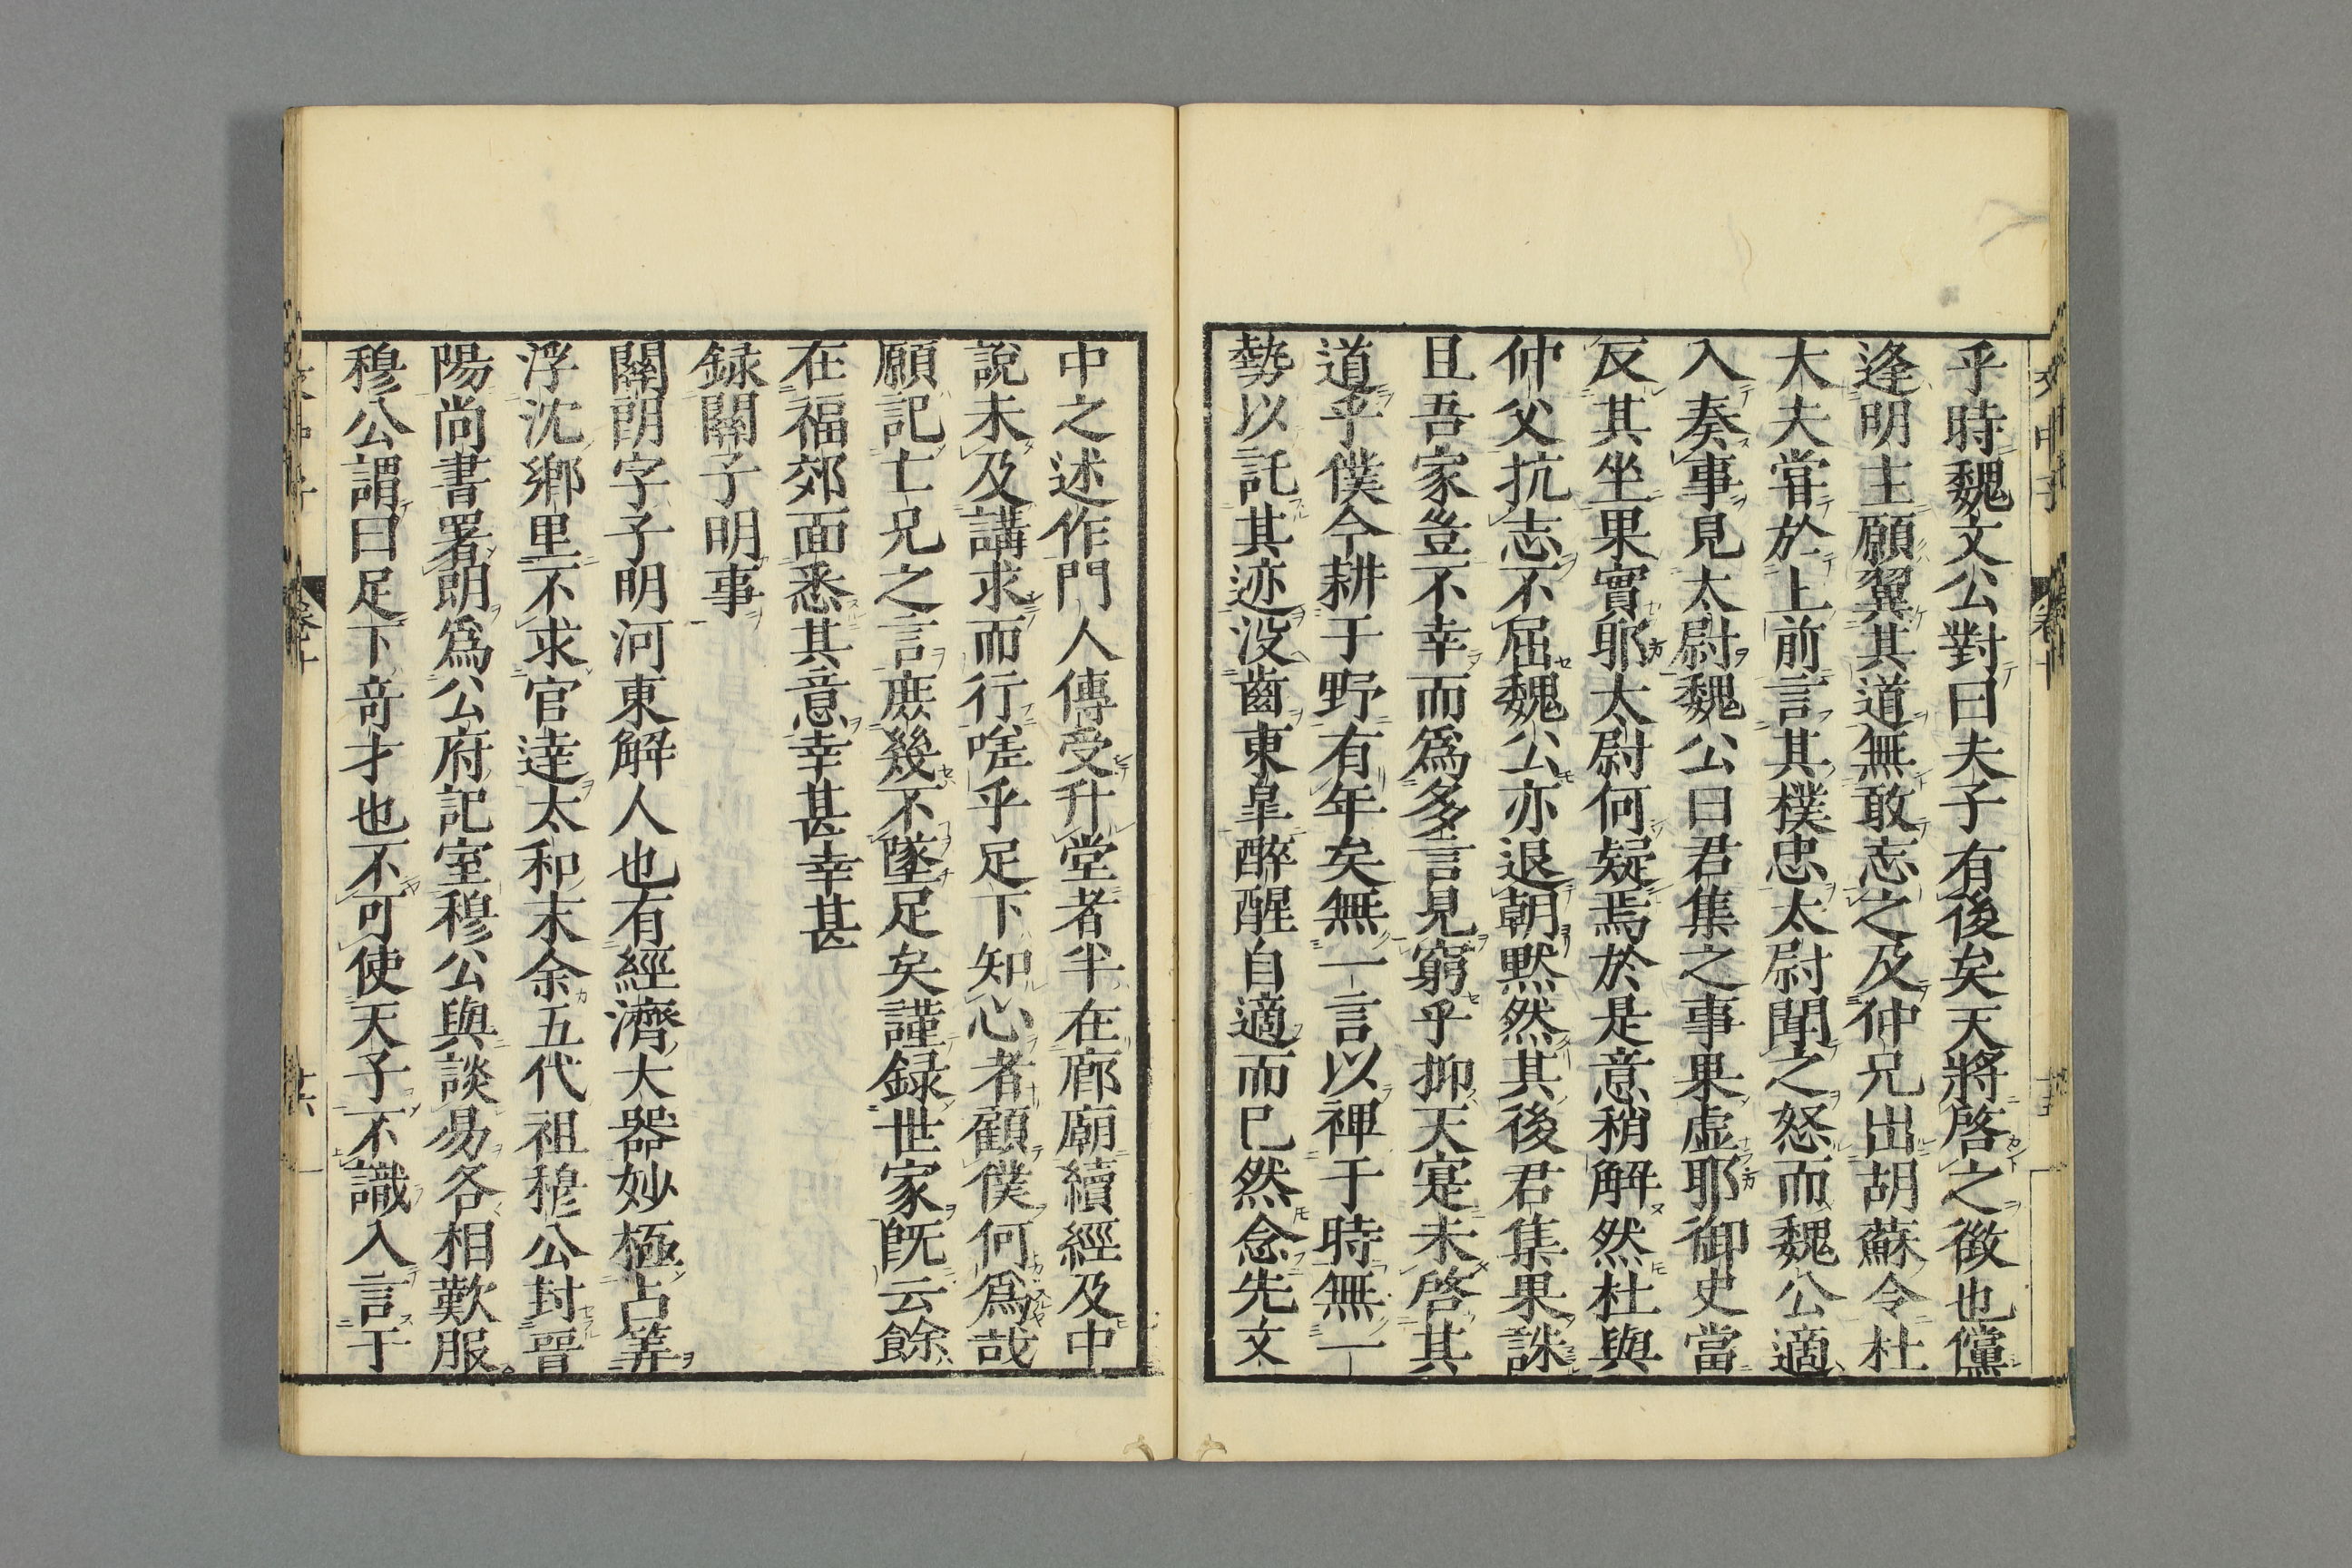 乎時魏文公對曰夫子有後矣天將啓之徴也儻
逢明主願翼其道無敢忘之及仲兄出胡蘇令杜
大夫嘗於上前言其樸忠太尉聞之怒而魏公適
入奏事見太尉魏公曰君集之事果虚耶御史當
反其坐果實耶太尉何疑焉於是意稍解然杜與
仲父抗志不屈魏公亦退朝黙然其後君集果誅
且吾家豈不幸而爲多言見窮乎抑天寔未啓其
道乎僕今耕于野有年矣無一言以裨于時無一
勢以託其迹没齒東皐醉醒自適而已然念先文
中之述作門人傳受升堂者半在廊廟續經及中
說未及講求而行嗟乎足下知心者顧僕何爲哉
願記亡兄之言庶幾不墜足矣謹録世家旣云餘
在福郊面悉其意幸甚幸甚
録關子明事
關朗字子明河東解人也有經濟大器妙極占筭
浮沈鄉里不求官達太和末余五代祖穆公封晉
陽尚書署朗爲公府記室穆公與談易各相歎服
穆公謂曰足下竒才也不可使天子不識入言于